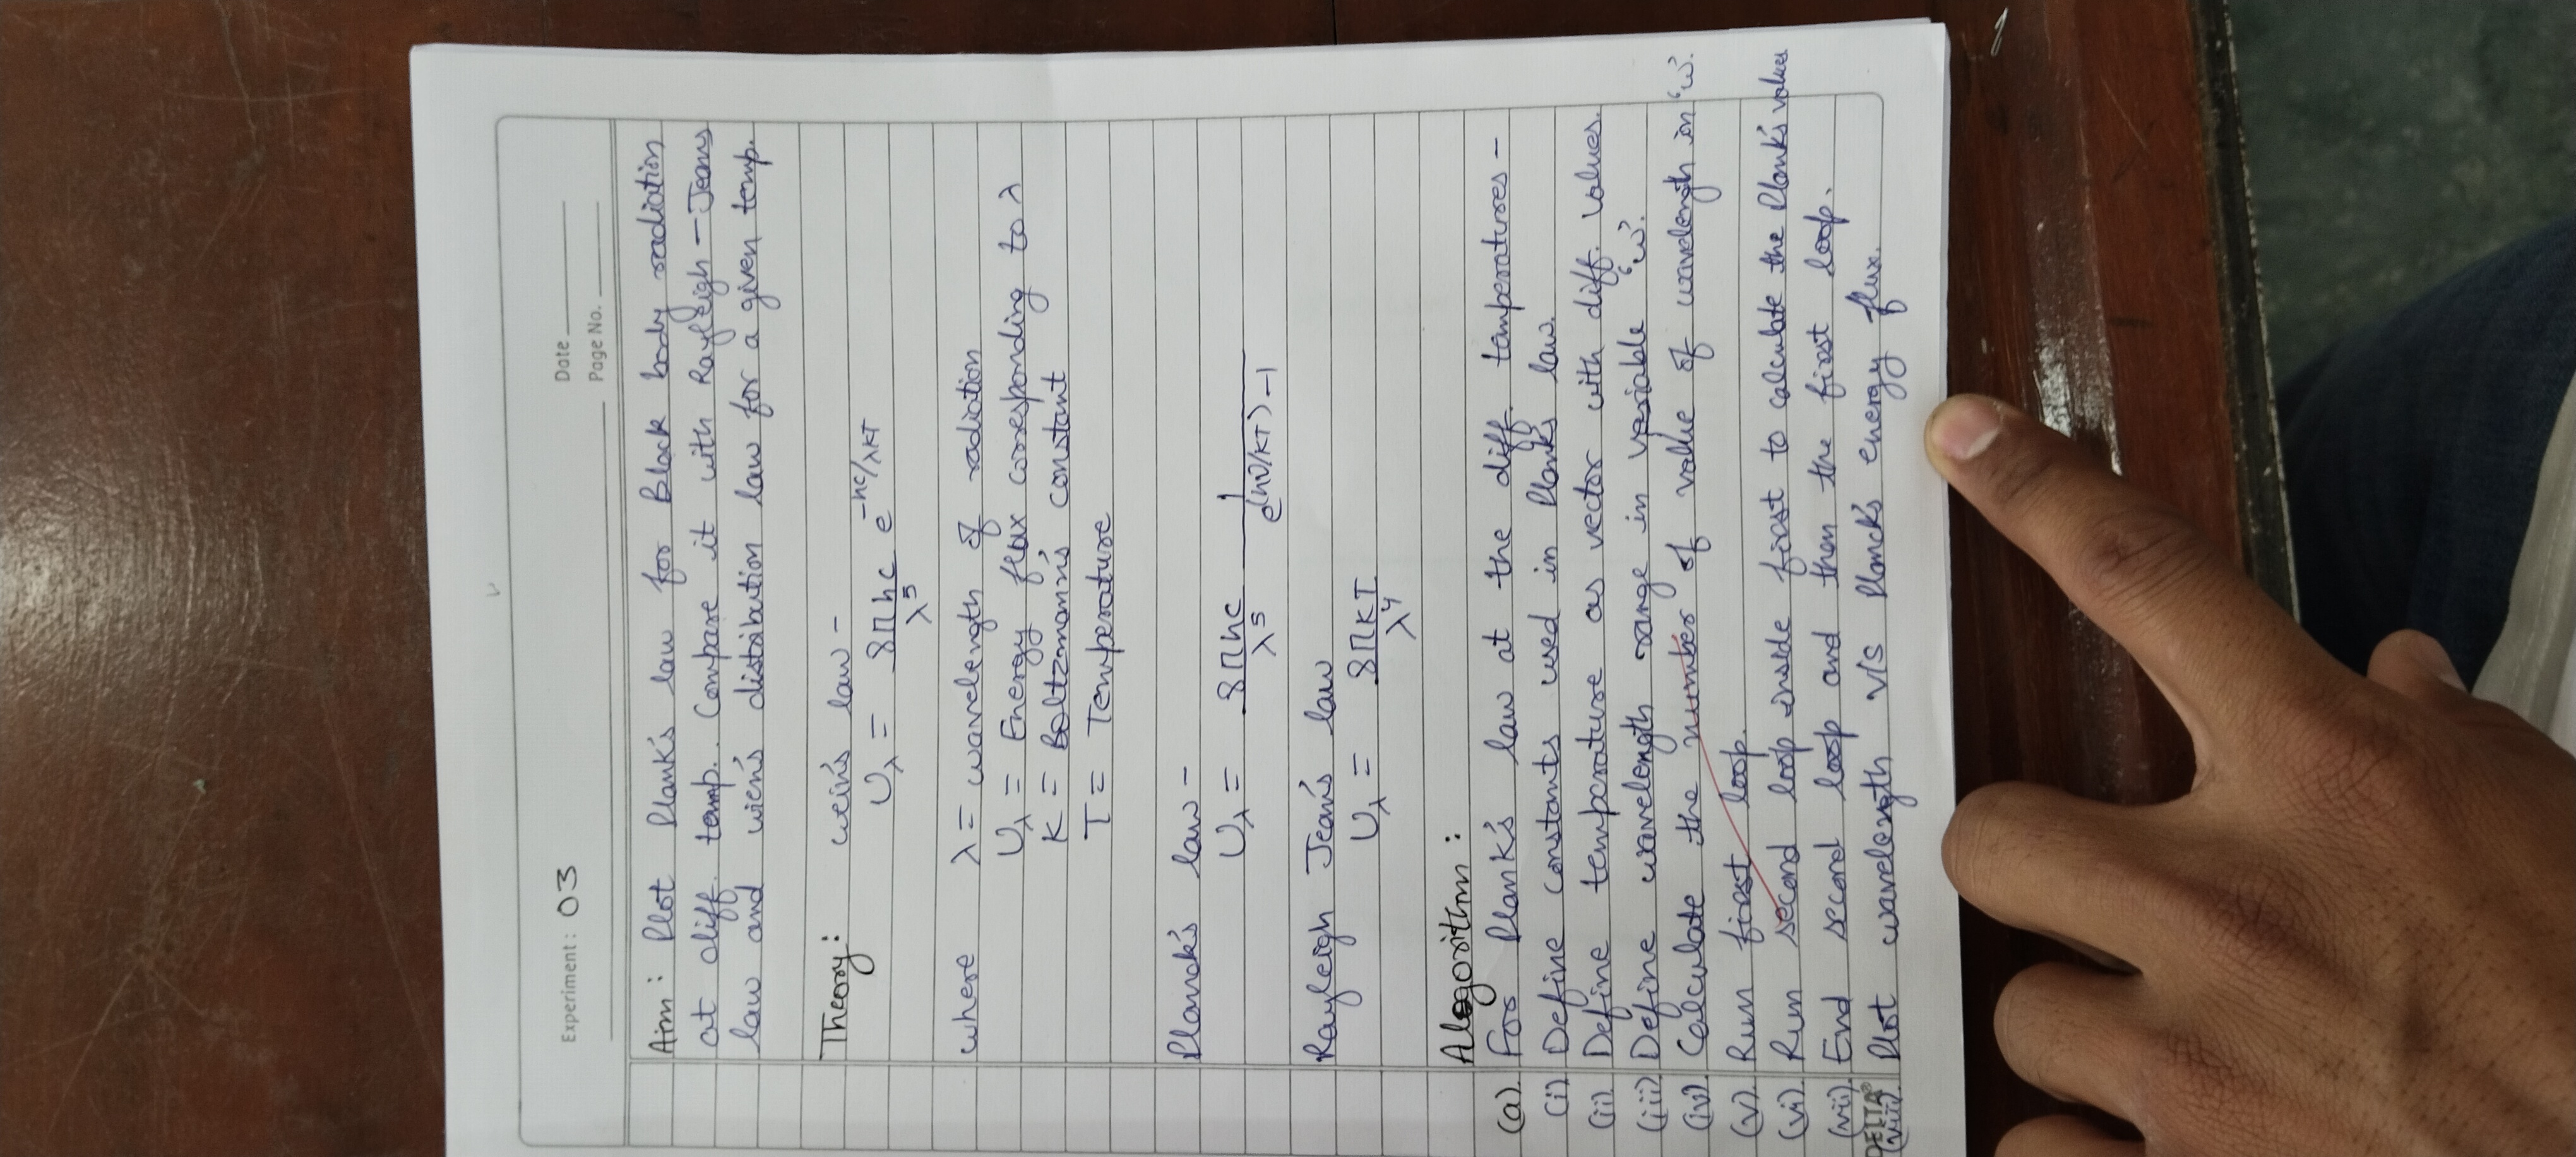 Experiment : 03
Date
Page No.
Aim : Plot Plank's law for Black body radiation
at diff. temp.. Compare it with Rayleigh - Jeans
law and wien's distribution law for a given temp.
Theory : wein's law -
Uλ = 8πhc/λ⁵ e^(-hc/λKT)
where λ = wavelength of radiation
Uλ = Energy flux corresponding to λ
K = Boltzmann's constant
T = Temperature
Planck's law -
Uλ = 8πhc/λ⁵ 1/(e^(hν/KT) -1)
Rayleigh Jean's law
Uλ = 8πKT/λ⁴
Alogorithm :
(a). For Plank's law at the diff. temperatures -
(i) Define constants used in Plank's law.
(ii). Define temperature as vector with diff. values.
(iii) Define wavelength range in variable 'w'.
(iv). Calculate the number of value of wavelength in 'w'.
(v). Run first loop.
(vi). Run second loop inside first to calculate the Plank's values
(vii). End second loop and then the first loop.
DELTA®
(viii). Plot wavelength v/s Planck's energy flux.